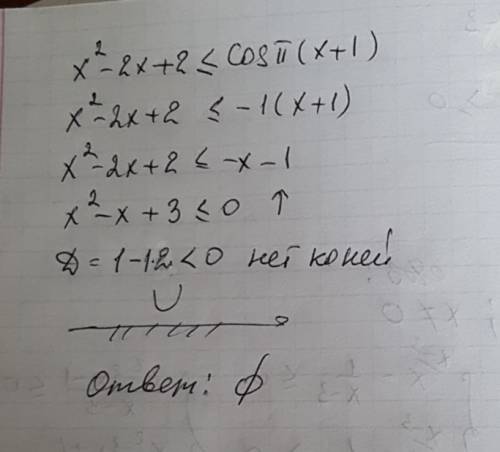 x² - 2x + 2 ≤ cos π (x+1)
x² - 2x + 2 ≤ -1(x+1)
x² - 2x + 2 ≤ -x - 1
x² - x + 3 ≤ 0 ↑
D = 1 - 12 < 0 нет коней
Ответ: ∅